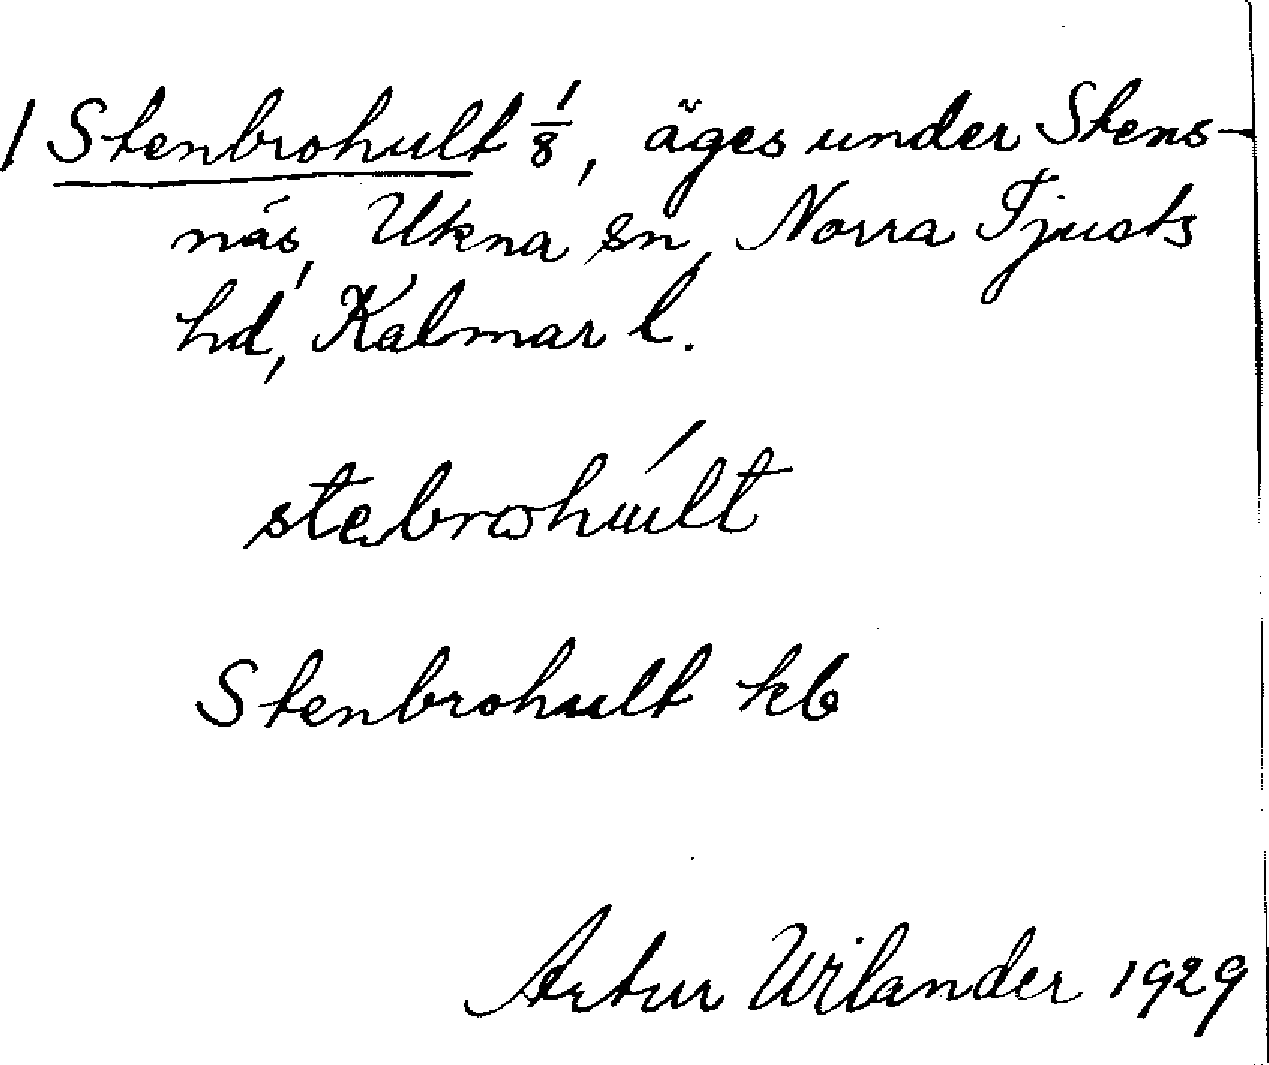 / Stenbrohult 1/8, äges under Stens-
näs, Ukna sn, Norra Tjusts
hd, Kalmar l.
stebrohu̍lt
Stenbrohult kb
Artur Wilander 1929